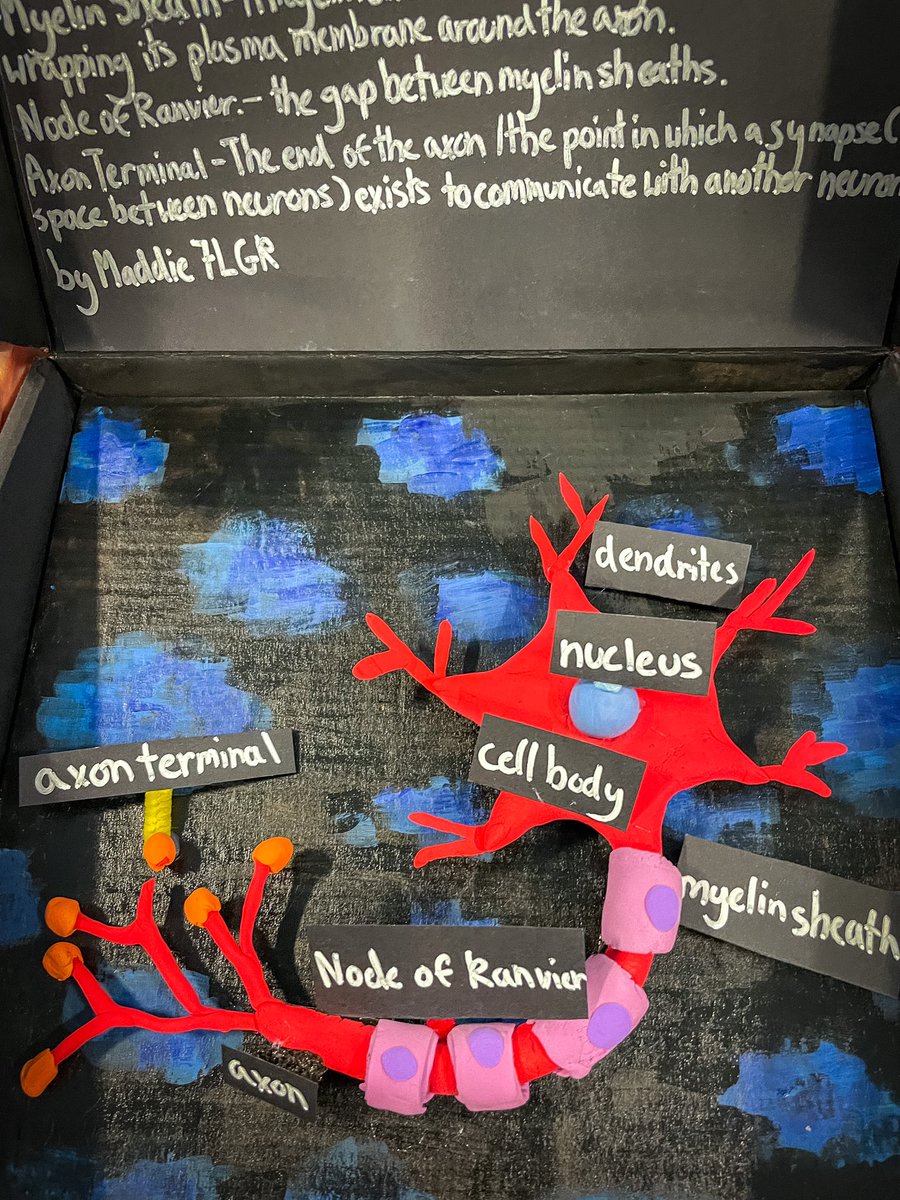 Myelin Sheath -
wrapping its plasma membrane around the axon.
Node of Ranvier. - the gap between myelin sheaths.
Axon Terminal - The end of the axon / the point in which a synapse (
space between neurons) exists to communicate with another neuron
by Maddie 7LGR
dendrites
nucleus
cell body
axon terminal
myelin sheath
Node of Ranvier
axon